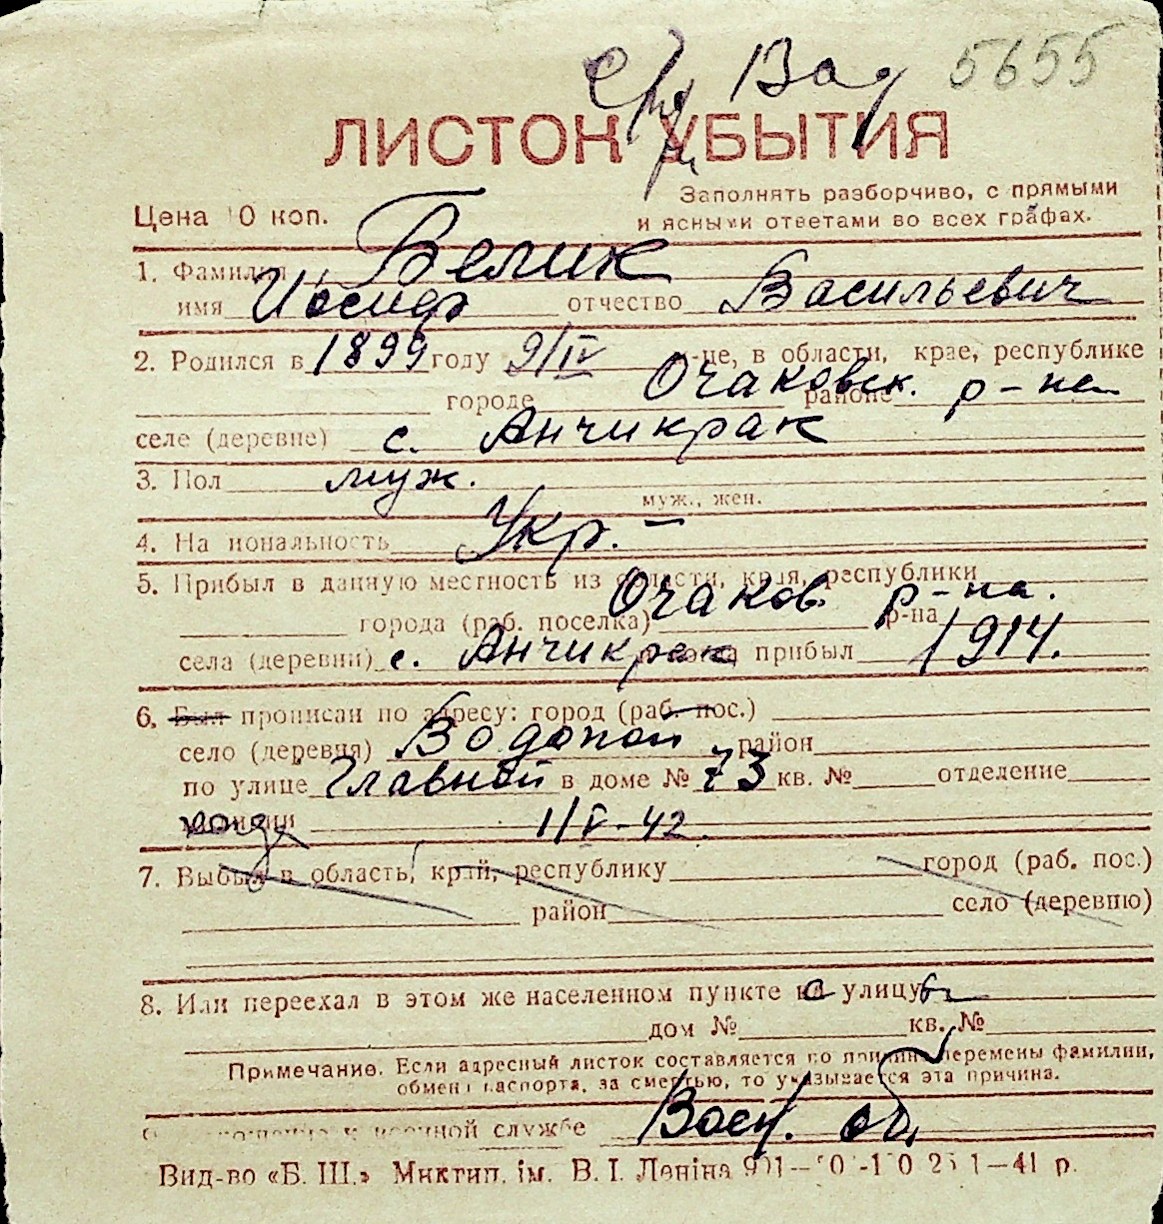 5655
ЛИСТОК УБЫТИЯ
Заполнять разборчиво, с прямыми
Цена 10 коп.
и ясными ответами во всех графах.
1. Фамилия Белик
имя Иосиф отчество Васильевич
2. Родился в 1899 году 9/IV -це, в области, крае, республике
городе Очаковск. районе р-на
селе (деревне) с. Анчикрак
3. Пол муж.
муж., жен.
4. Национальность Укр. –
5. Прибыл в данную местность из области, края, республики
города (раб. поселка) Очаков. р-на р-на.
села (деревни) с. Анчикрак прибыл 1914.
6. Был прописан по адресу: город (раб. пос.)
село (деревня) Водопой район
по улице Главной в доме № 73 кв. № отделение
милиции 1/V-42.
7. Выбыл в область, край, республику город (раб. пос.)
район село (деревню)
8. Или переехал в этом же населенном пункте на улицу
дом № кв. №
Примечание. Если адресный листок составляется по причине перемены фамилии,
обмена паспорта, за смертью, то указывается эта причина.
военной службе Воен. об.
Вид-во «Б. Ш.» Миктип. ім. В. І. Леніна 1—41 р.